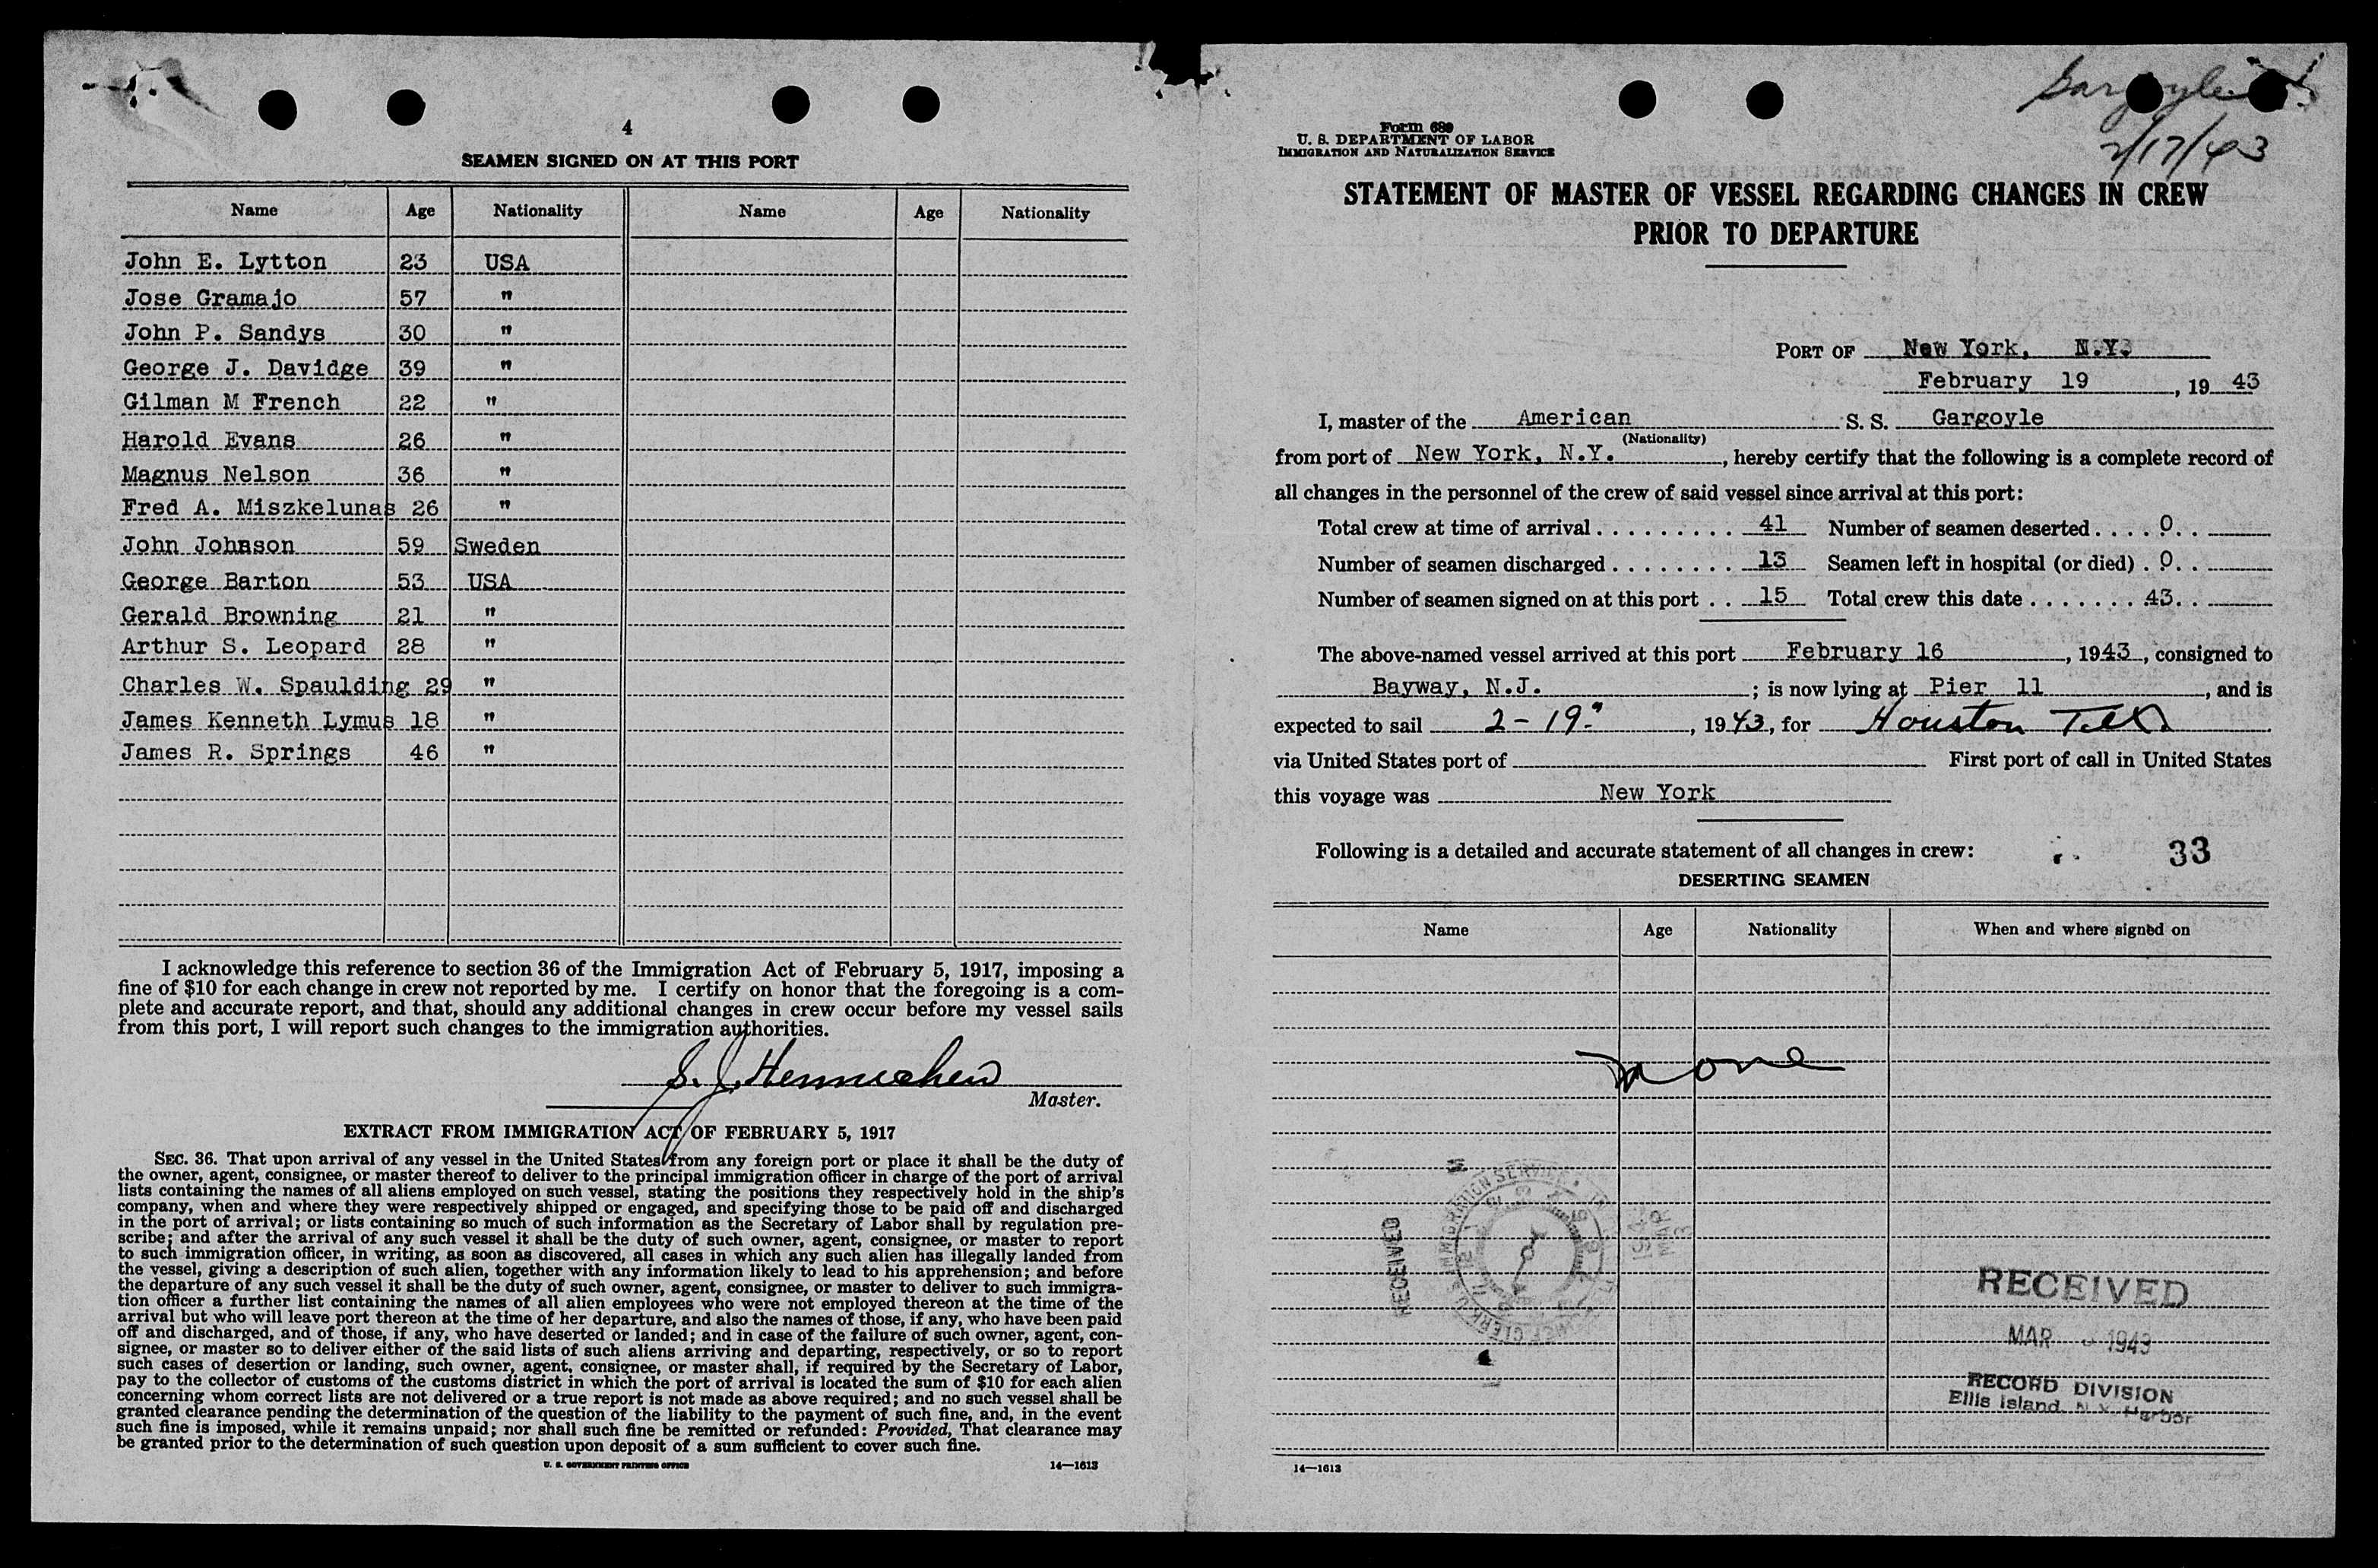 4
SEAMEN SIGNED ON AT THIS PORT
Name Age Nationality Name Age Nationality
John E. Lytton 23 USA
Jose Gramajo 57 "
John P. Sandys 30 "
George J. Davidge 39 "
Gilman M French 22 "
Harold Evans 26 "
Magnus Nelson 36 "
Fred A. Miszkelunas 26 "
John Johnson 59 Sweden
George Barton 53 USA
Gerald Browning 21 "
Arthur S. Leopard 28 "
Charles W. Spaulding 29 "
James Kenneth Lymus 18 "
James R. Springs 46 "
I acknowledge this reference to section 36 of the Immigration Act of February 5, 1917, imposing a
fine of $10 for each change in crew not reported by me. I certify on honor that the foregoing is a com-
plete and accurate report, and that, should any additional changes in crew occur before my vessel sails
from this port, I will report such changes to the immigration authorities.
S. J.
Master.
EXTRACT FROM IMMIGRATION ACT OF FEBRUARY 5, 1917
SEC. 36. That upon arrival of any vessel in the United States from any foreign port or place it shall be the duty of
the owner, agent, consignee, or master thereof to deliver to the principal immigration officer in charge of the port of arrival
lists containing the names of all aliens employed on such vessel, stating the positions they respectively hold in the ship's
company, when and where they were respectively shipped or engaged, and specifying those to be paid off and discharged
in the port of arrival; or lists containing so much of such information as the Secretary of Labor shall by regulation pre-
scribe; and after the arrival of any such vessel it shall be the duty of such owner, agent, consignee, or master to report
to such immigration officer, in writing, as soon as discovered, all cases in which any such alien has illegally landed from
the vessel, giving a description of such alien, together with any information likely to lead to his apprehension; and before
the departure of any such vessel it shall be the duty of such owner, agent, consignee, or master to deliver to such immigra-
tion officer a further list containing the names of all alien employees who were not employed thereon at the time of the
arrival but who will leave port thereon at the time of her departure, and also the names of those, if any, who have been paid
off and discharged, and of those, if any, who have deserted or landed; and in case of the failure of such owner, agent, con-
signee, or master so to deliver either of the said lists of such aliens arriving and departing, respectively, or so to report
such cases of desertion or landing, such owner, agent, consignee, or master shall, if required by the Secretary of Labor,
pay to the collector of customs of the customs district in which the port of arrival is located the sum of $10 for each alien
concerning whom correct lists are not delivered or a true report is not made as above required; and no such vessel shall be
granted clearance pending the determination of the question of the liability to the payment of such fine, and, in the event
such fine is imposed, while it remains unpaid; nor shall such fine be remitted or refunded: Provided, That clearance may
be granted prior to the determination of such question upon deposit of a sum sufficient to cover such fine.
U. S. GOVERNMENT PRINTING OFFICE 14—1613
Gargoyle
2/17/43
Form 689
U. S. DEPARTMENT OF LABOR
IMMIGRATION AND NATURALIZATION SERVICE
STATEMENT OF MASTER OF VESSEL REGARDING CHANGES IN CREW
PRIOR TO DEPARTURE
PORT OF New York, N.Y.
February 19, 19 43
I, master of the American S. S. Gargoyle
(Nationality)
from port of New York, N.Y., hereby certify that the following is a complete record of
all changes in the personnel of the crew of said vessel since arrival at this port:
Total crew at time of arrival . . . . . . . . . . 41 Number of seamen deserted . . . . 0 . .
Number of seamen discharged . . . . . . . . 13 Seamen left in hospital (or died) . 0 . .
Number of seamen signed on at this port . . 15 Total crew this date . . . . . . . 43 . .
The above-named vessel arrived at this port February 16, 1943, consigned to
Bayway, N.J.; is now lying at Pier 11, and is
expected to sail 2-19-, 1943, for Houston Tex
via United States port of First port of call in United States
this voyage was New York
Following is a detailed and accurate statement of all changes in crew: 33
DESERTING SEAMEN
Name Age Nationality When and where signed on
none
RECEIVED
RECEIVED
MAR 1943
RECORD DIVISION
Ellis Island N.Y. Harbor
14—1613